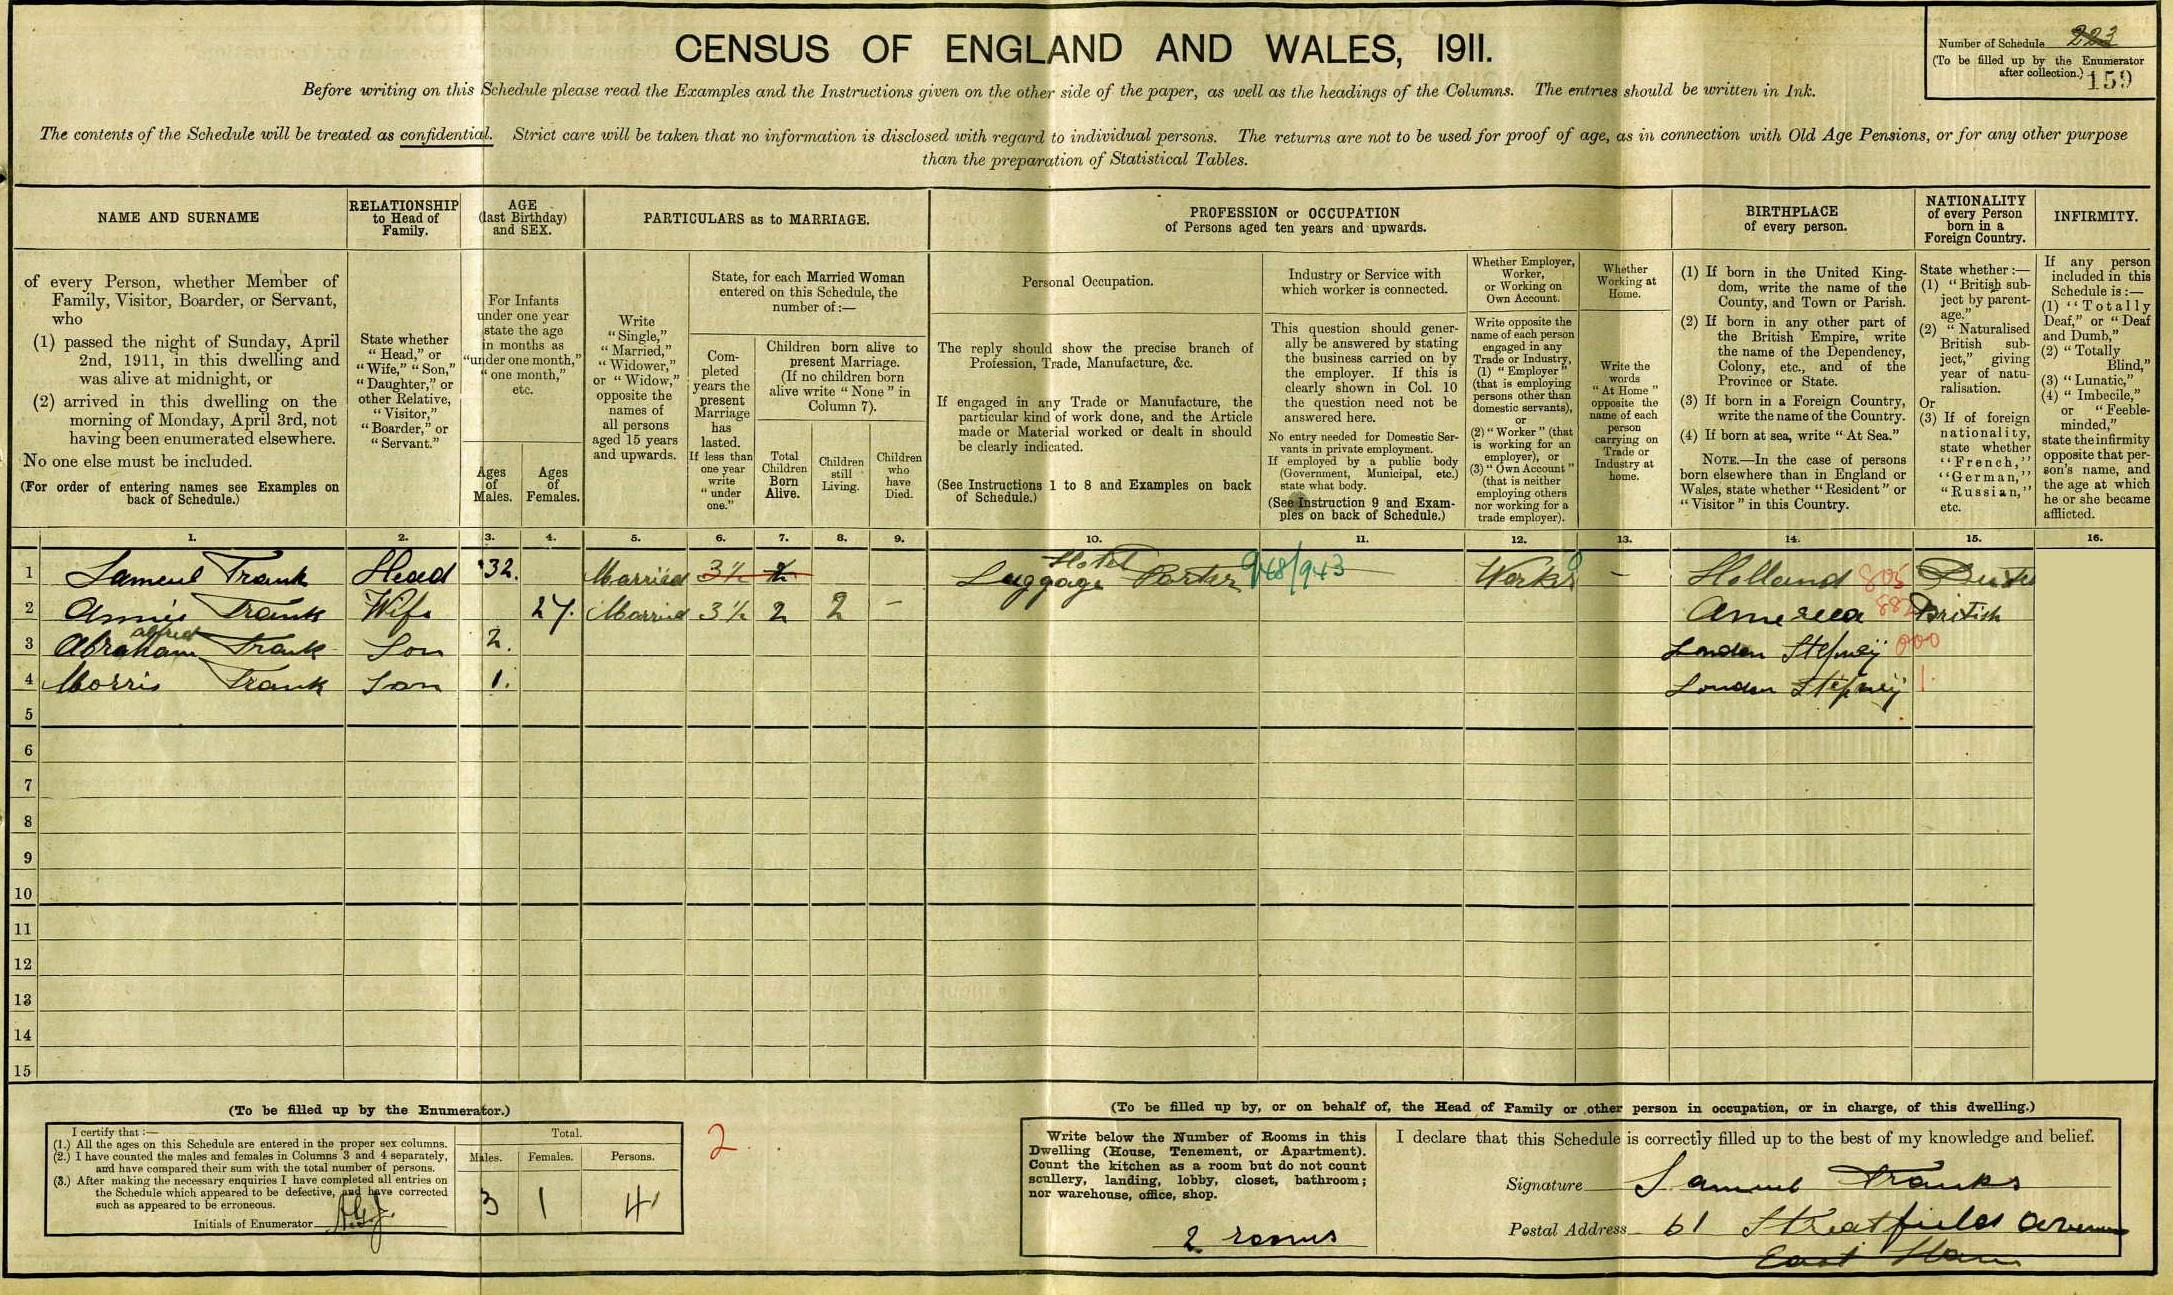 CENSUS OF ENGLAND AND WALES, 1911.
Number of Schedule 223
(To be filled up by the Enumerator
after collection.) 159
Before writing on this Schedule please read the Examples and the Instructions given on the other side of the paper, as well as the headings of the Columns. The entries should be written in Ink.
The contents of the Schedule will be treated as confidential. Strict care will be taken that no information is disclosed with regard to individual persons. The returns are not to be used for proof of age, as in connection with Old Age Pensions, or for any other purpose
than the preparation of Statistical Tables.
NAME AND SURNAME
RELATIONSHIP
to Head of
Family.
AGE
(last Birthday)
and SEX.
PARTICULARS as to MARRIAGE.
PROFESSION or OCCUPATION
of Persons aged ten years and upwards.
BIRTHPLACE
of every person.
NATIONALITY
of every Person
born in a
Foreign Country.
INFIRMITY.
of every Person, whether Member of
Family, Visitor, Boarder, or Servant,
who
(1) passed the night of Sunday, April
2nd, 1911, in this dwelling and
was alive at midnight, or
(2) arrived in this dwelling on the
morning of Monday, April 3rd, not
having been enumerated elsewhere.
No one else must be included.
(For order of entering names see Examples on
back of Schedule.)
State whether
"Head," or
"Wife," "Son,"
"Daughter," or
other Relative,
"Visitor,"
"Boarder," or
"Servant."
For Infants
under one year
state the age
in months as
"under one month,"
"one month,"
etc.
Ages
of
Males.
Ages
of
Females.
Write
"Single,"
"Married,"
"Widower,"
or "Widow,"
opposite the
names of
all persons
aged 15 years
and upwards.
State, for each Married Woman
entered on this Schedule, the
number of:—
Com-
pleted
years the
present
Marriage
has
lasted.
If less than
one year
write
"under
one."
Children born alive to
present Marriage.
(If no children born
alive write "None" in
Column 7).
Total
Children
Born
Alive.
Children
still
Living.
Children
who
have
Died.
Personal Occupation.
The reply should show the precise branch of
Profession, Trade, Manufacture, &c.
If engaged in any Trade or Manufacture, the
particular kind of work done, and the Article
made or Material worked or dealt in should
be clearly indicated.
(See Instructions 1 to 8 and Examples on back
of Schedule.)
Industry or Service with
which worker is connected.
This question should gener-
ally be answered by stating
the business carried on by
the employer. If this is
clearly shown in Col. 10
the question need not be
answered here.
No entry needed for Domestic Ser-
vants in private employment.
If employed by a public body
(Government, Municipal, etc.)
state what body.
(See Instruction 9 and Exam-
ples on back of Schedule.)
Whether Employer,
Worker,
or Working on
Own Account.
Write opposite the
name of each person
engaged in any
Trade or Industry,
(1) "Employer"
(that is employing
persons other than
domestic servants),
or
(2) "Worker" (that
is working for an
employer), or
(3) "Own Account"
(that is neither
employing others
nor working for a
trade employer).
Whether
Working at
Home.
Write the
words
"At Home"
opposite the
name of each
person
carrying on
Trade or
Industry at
home.
(1) If born in the United King-
dom, write the name of the
County, and Town or Parish.
(2) If born in any other part of
the British Empire, write
the name of the Dependency,
Colony, etc., and of the
Province or State.
(3) If born in a Foreign Country,
write the name of the Country.
(4) If born at sea, write "At Sea."
NOTE.—In the case of persons
born elsewhere than in England or
Wales, state whether "Resident" or
"Visitor" in this Country.
State whether:—
(1) "British sub-
ject by parent-
age."
(2) "Naturalised
British sub-
ject," giving
year of natu-
ralisation.
Or
(3) If of foreign
nationality,
state whether
"French,"
"German,"
"Russian,"
etc.
If any person
included in this
Schedule is:—
(1) "Totally
Deaf," or "Deaf
and Dumb,"
(2) "Totally
Blind,"
(3) "Lunatic,"
(4) "Imbecile,"
or "Feeble-
minded,"
state the infirmity
opposite that per-
son's name, and
the age at which
he or she became
afflicted.
1. 2. 3. 4. 5. 6. 7. 8. 9. 10. 11. 12. 13. 14. 15. 16.
1 Samuel Frank Head 32. Married 3½ 2 Hotel Luggage Porter 968/943 Worker — Holland 805
2 Annie Frank Wife 27. Married 3½ 2 2 — America British
3 Abraham alfred Frank Son 2. London Stepney 000
4 Morris Frank Son 1. London Stepney 1.
5
6
7
8
9
10
11
12
13
14
15
(To be filled up by the Enumerator.)
I certify that:—
(1.) All the ages on this Schedule are entered in the proper sex columns.
(2.) I have counted the males and females in Columns 3 and 4 separately,
and have compared their sum with the total number of persons.
(3.) After making the necessary enquiries I have completed all entries on
the Schedule which appeared to be defective, and have corrected
such as appeared to be erroneous.
Initials of Enumerator
Total.
Males. Females. Persons.
3 1 4
2
(To be filled up by, or on behalf of, the Head of Family or other person in occupation, or in charge, of this dwelling.)
Write below the Number of Rooms in this
Dwelling (House, Tenement, or Apartment).
Count the kitchen as a room but do not count
scullery, landing, lobby, closet, bathroom;
nor warehouse, office, shop.
2 rooms
I declare that this Schedule is correctly filled up to the best of my knowledge and belief.
Signature Samuel Franks
Postal Address 61 Streatfield Avenue
East Ham